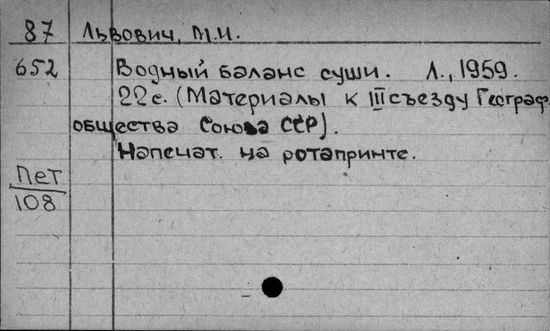 87 Львович, М.И.
652 Водный баланс суши. Л., 1959.
22 с. (Материалы к III съезду Географ.
общества Союза ССР).
Напечат. на ротапринте.
Пет
108